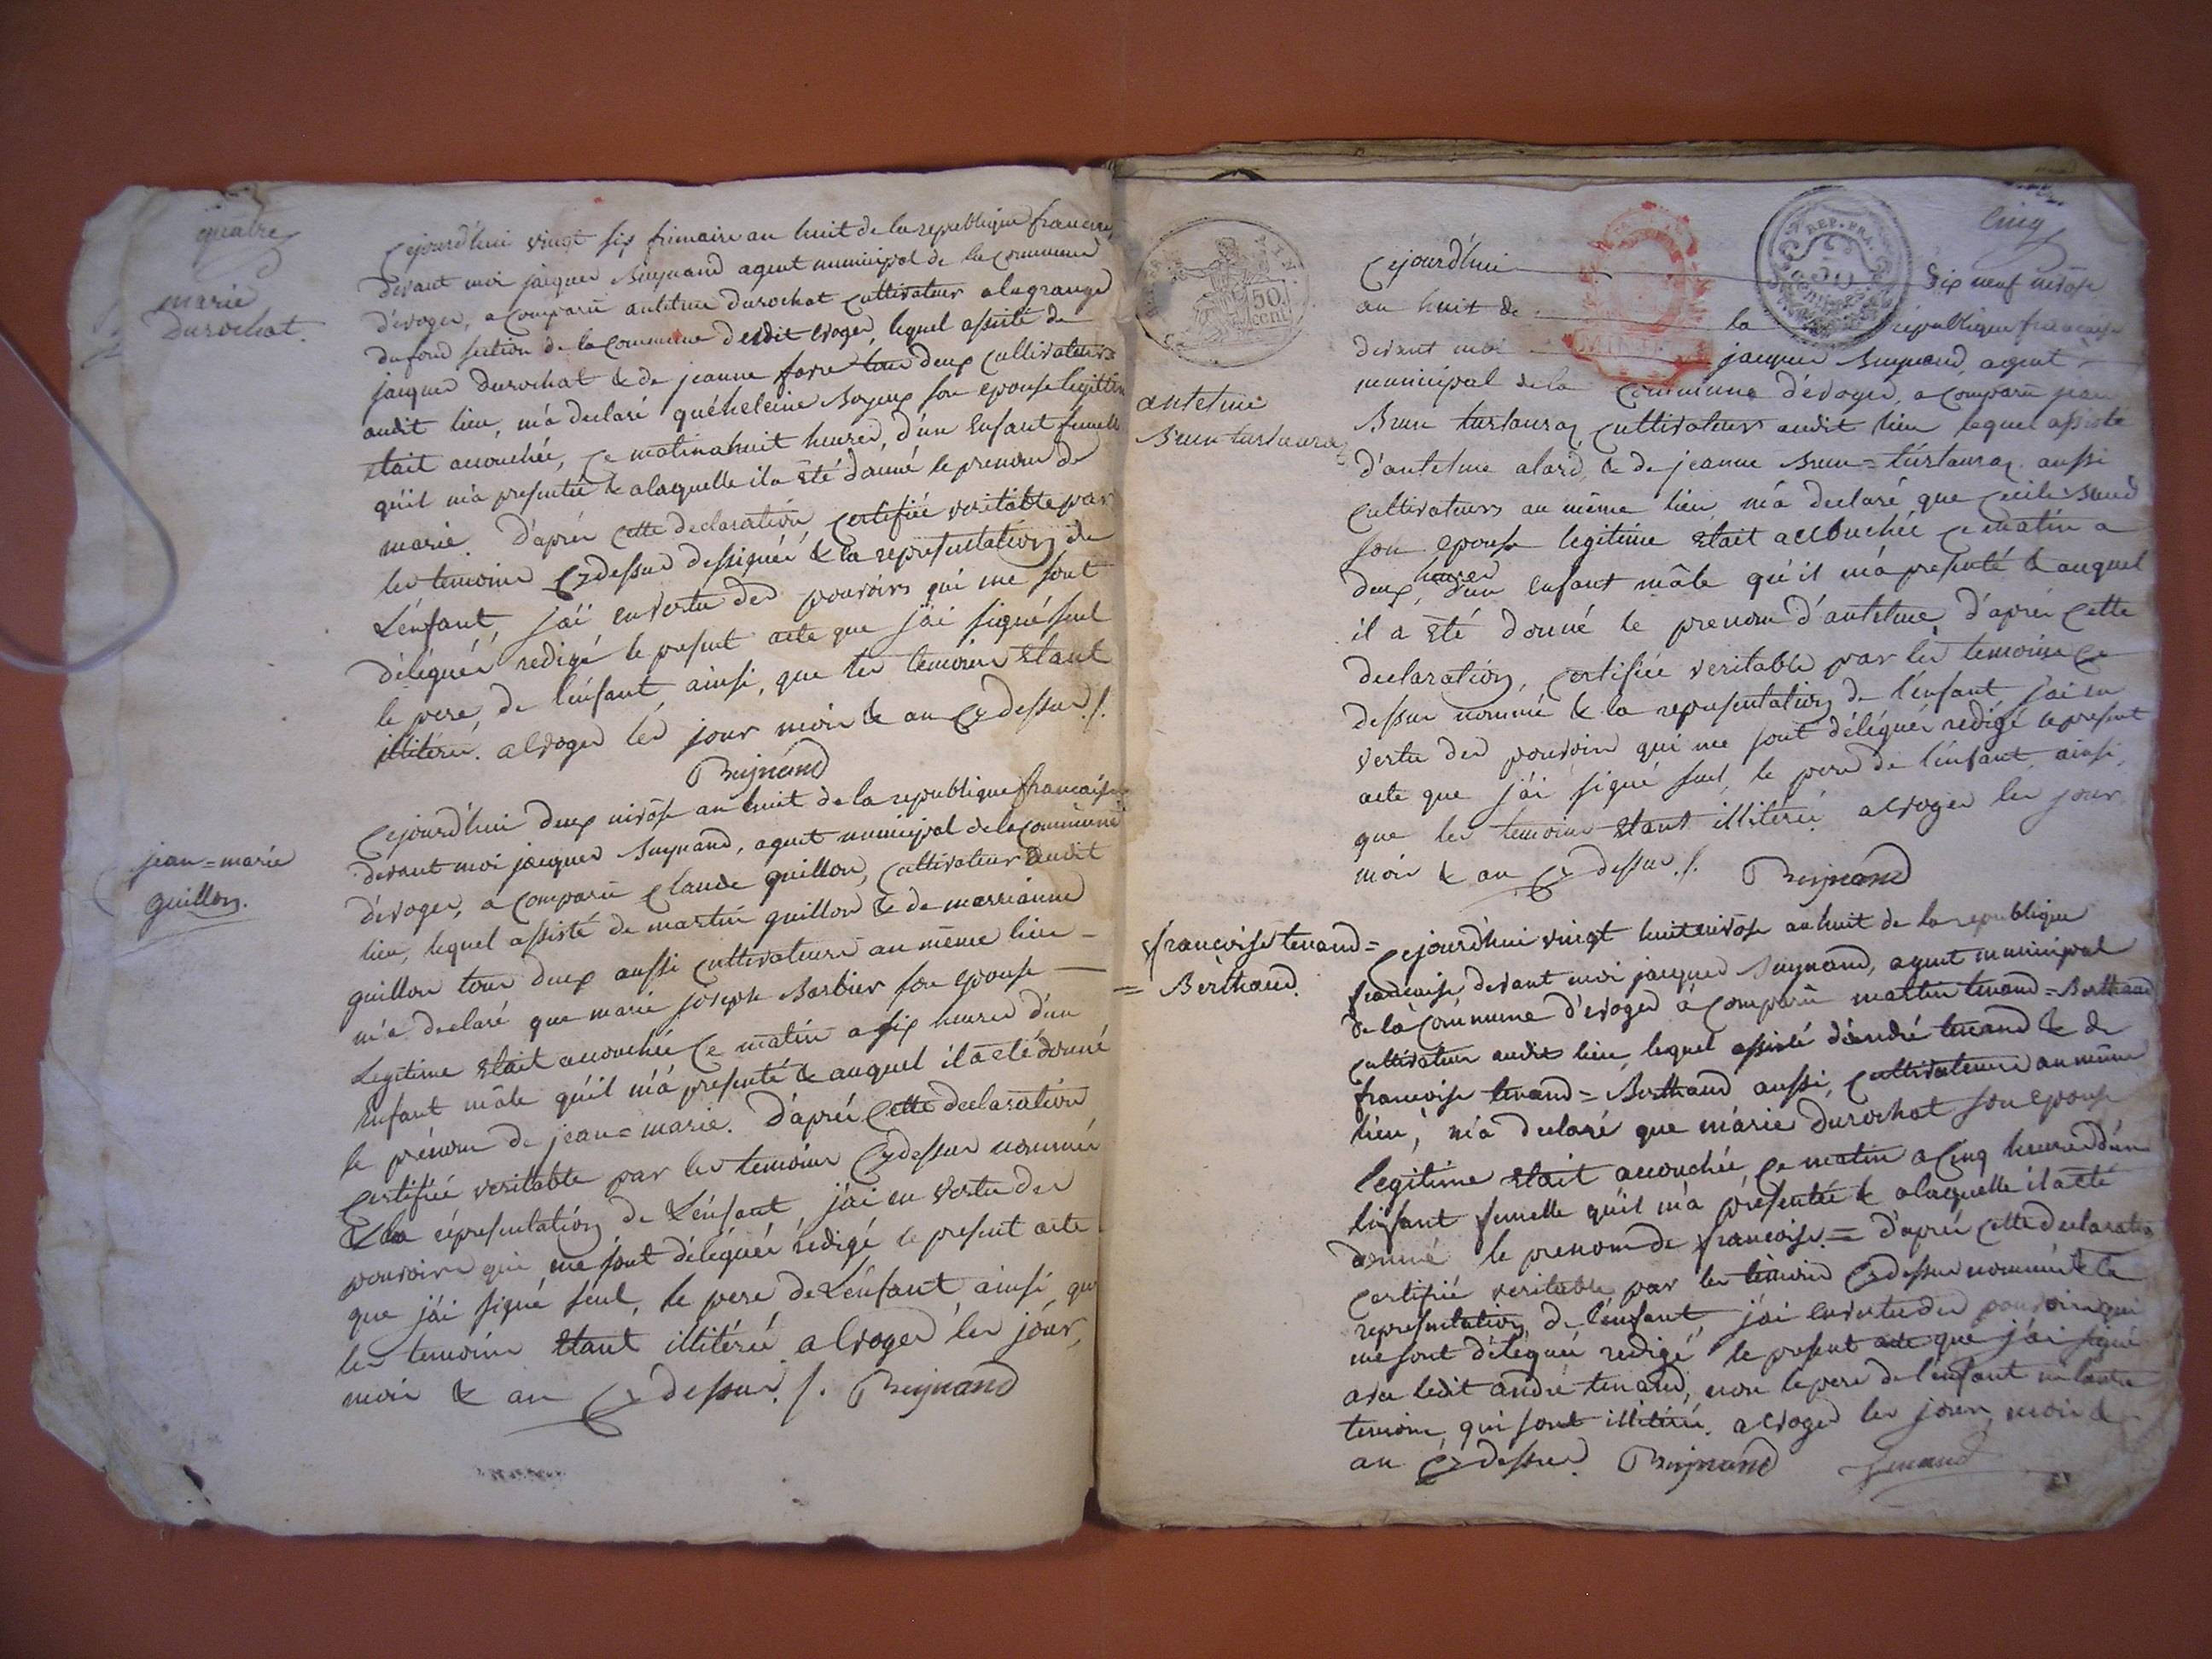 quatre
marie
Durochat.
Cejourd'hui vingt six frimaire an huit de la republique francaise
devant moi jacques Buynand agent municipal de la commune
d'evoges, a comparu antelme Durochat cultivateur a la grange
du fond section de la commune dudit evoges, lequel assisté de
jacques Durochat & de jeanne favre tous deux cultivateurs
audit lieu, m'a declaré qu'éheleine son epouse legitime
était accouchée, ce matin a huit heures, d'un Enfant femelle
qu'il m'a presentée & a laquelle il a été donné le prenom de
marie. D'aprés cette declaration certifiée veritable par
les temoins cydessus dessignés & la representation de
L'enfant, j'ai en vertu des pouvoirs qui me sont
délégués, redigé le present acte que j'ai signé seul
le pere, de l'enfant, ainsi, que les temoins étant
illitérés. a Evoges les jour mois & an cy dessus ./.
Buynand
jean=marie
guillon.
Cejourd'hui deux nivôse an huit de la republique francaise
devant moi jacques Buynand, agent municipal de la commune
d'evoges, a comparu Claude guillon, cultivateur audit
lieu, lequel assisté de martin guillon & de marrianne
guillon tous deux aussi cultivateurs au même lieu —
m'a declaré que marie joseph Barbier son epouse —
Legitime était accouchée ce matin a six heures d'un
Enfant mâle qu'il m'a presenté & auquel il a été donné
le prénom de jean=marie. D'aprés cette declaration
certifiée veritable par les temoins cydessus nommés
& la représentation de L'enfant, j'ai en vertu des
pouvoirs qui me sont délégués rédigé le present acte
que j'ai signé seul, le pere de L'enfant ainsi que
les temoins étant illitérés a Evoges les jour,
mois & an cy dessus. /. Buynand
cinq
REP. FRA.
50
cent
antelme
Brun tartanraz
Cejourd'hui dix neuf nivôse
an huit de la république francaise
devant moi jacques Buynand, agent
municipal de la commune d'evoges, a comparu jean
Brun cultivateur audit lieu lequel assisté
d'antelme alard, & de jeanne Brun= aussi
cultivateurs au même lieu m'a declaré que Cecile
son epouse legitime était accouchée ce matin a
deux heures, d'un enfant mâle qu'il m'a presenté & auquel
il a été donné le prenom d'antelme, d'aprés cette
declaration, certifiée veritable par les temoins cy
dessus nommés & la representation de l'enfant j'ai en
vertu des pouvoirs qui me sont délégués redigé le present
acte que j'ai signé seul, le pere de l'enfant, ainsi,
que les temoins étant illiterés. a Evoges les jour
mois & an cy dessus ./. Buynand
francoise tenand=
= Berthand.
Cejourd'hui vingt huit nivôse an huit de la republique
francaise devant moi jacques Buynand, agent municipal
de la commune d'evoges a comparu martin tenand=Berthand
cultivateur audit lieu, lequel assisté d'andré tenand & de
francoise tenand=Berthand aussi, cultivateurs au même
lieu, m'a declaré que marie Durochat son epouse
legitime était accouchée, ce matin a cinq heures d'un
Enfant femelle qu'il m'a presentée & a laquelle il a été
donné le prenom de francoise. = d'aprés cette declaration
certifiée veritable par les temoins cydessus nommés & la
representation de l'enfant, j'ai en vertu des pouvoirs qui
me sont délégués redigé le present acte que j'ai signé
avec ledit andré tenand, non le pere de l'enfant ni l'autre
temoin, qui sont illitérés. a Evoges les jour, mois &
an cy dessus. Buynand tenand